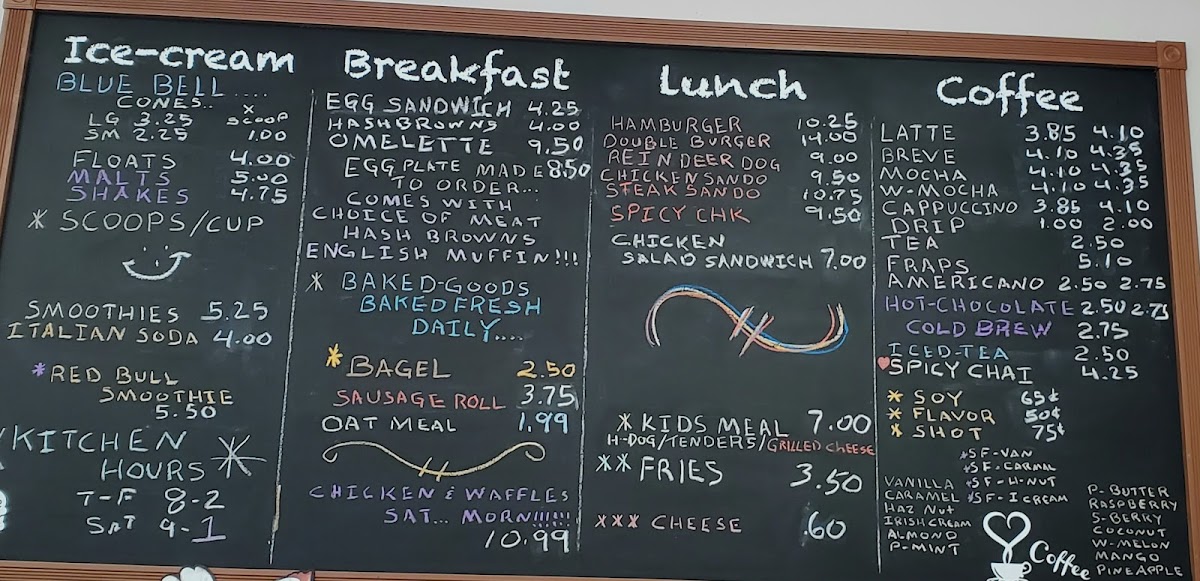 Ice-cream
BLUE BELL....
CONES.. X
LG 3.25 SCOOP
SM 2.25 1.00
FLOATS 4.00
MALTS 5.00
SHAKES 4.75
* SCOOPS/CUP
SMOOTHIES 5.25
ITALIAN SODA 4.00
*RED BULL
SMOOTHIE
5.50
KITCHEN
HOURS *
T-F 8-2
SAT 9-1
Breakfast
EGG SANDWICH 4.25
HASHBROWNS 4.00
OMELETTE 9.50
EGG PLATE MADE 8.50
TO ORDER...
COMES WITH
CHOICE OF MEAT
HASH BROWNS
ENGLISH MUFFIN!!!
* BAKED-GOODS
BAKED FRESH
DAILY....
* BAGEL 2.50
SAUSAGE ROLL 3.75
OAT MEAL 1.99
CHICKEN & WAFFLES
SAT... MORN!!!!!!
10.99
Lunch
HAMBURGER 10.25
DOUBLE BURGER 14.00
REINDEER DOG 9.00
CHICKEN SANDO 9.50
STEAK SANDO 10.75
SPICY CHK 9.50
CHICKEN
SALAD SANDWICH 7.00
* KIDS MEAL 7.00
H-DOG/TENDERS/GRILLED CHEESE
** FRIES 3.50
*** CHEESE .60
Coffee
LATTE 3.85 4.10
BREVE 4.10 4.35
MOCHA 4.10 4.35
W-MOCHA 4.10 4.35
CAPPUCCINO 3.85 4.10
DRIP 1.00 2.00
TEA 2.50
FRAPS 5.10
AMERICANO 2.50 2.75
HOT-CHOCOLATE 2.50 2.75
COLD BREW 2.75
ICED-TEA 2.50
SPICY CHAI 4.25
* SOY 65¢
* FLAVOR 50¢
* SHOT 75¢
*SF-VAN
*SF-CARMAL
*SF-H-NUT
*SF-I CREAM
VANILLA
CARAMEL
HAZ NUT
IRISH CREAM
ALMOND
P-MINT
P-BUTTER
RASPBERRY
S-BERRY
COCONUT
W-MELON
MANGO
PINEAPPLE
Coffee